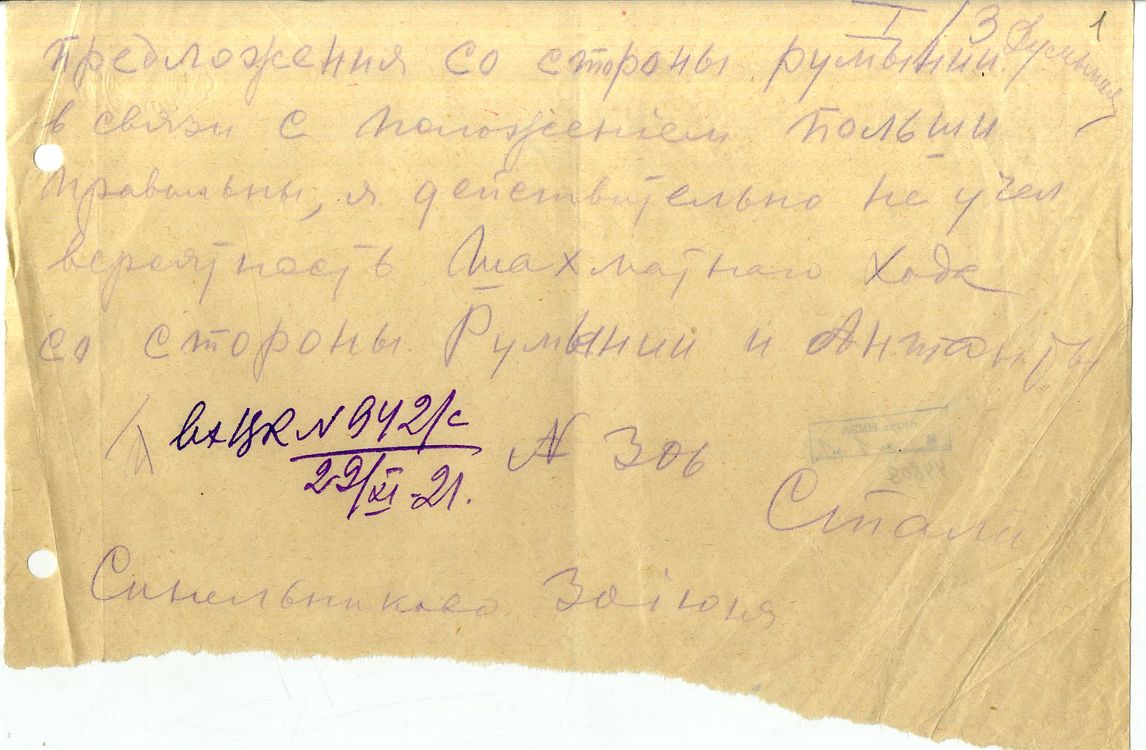 I/3 Румыния 1
предложения со стороны румынии
в связи с положением Польши
правильны, я действительно не учел
вероятность Шахматного хода
со стороны Румынии и Антанты
вх ЦК N 942/с
29/XI-21.
N 306
Сталин
Синельниково 30 июня